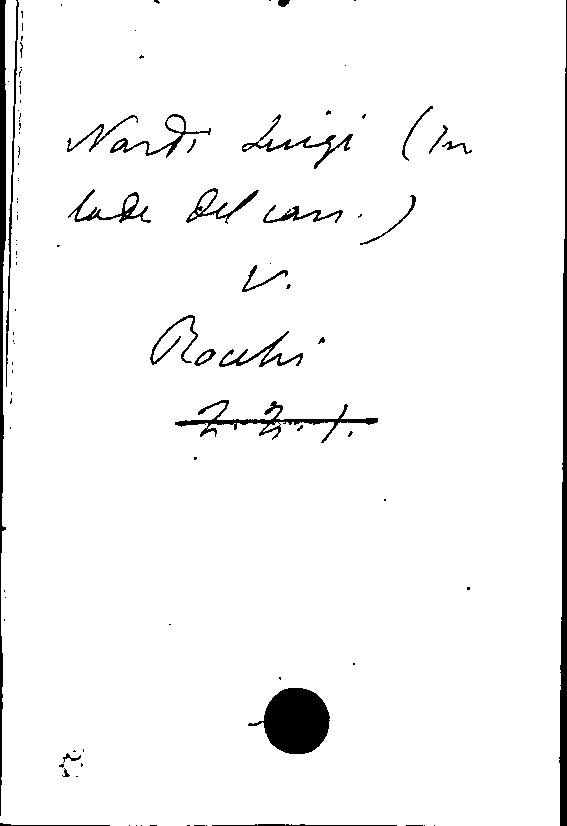 Nardi Luigi (In
lode del can.)
v.
Rocchi
Z. Z. 1.